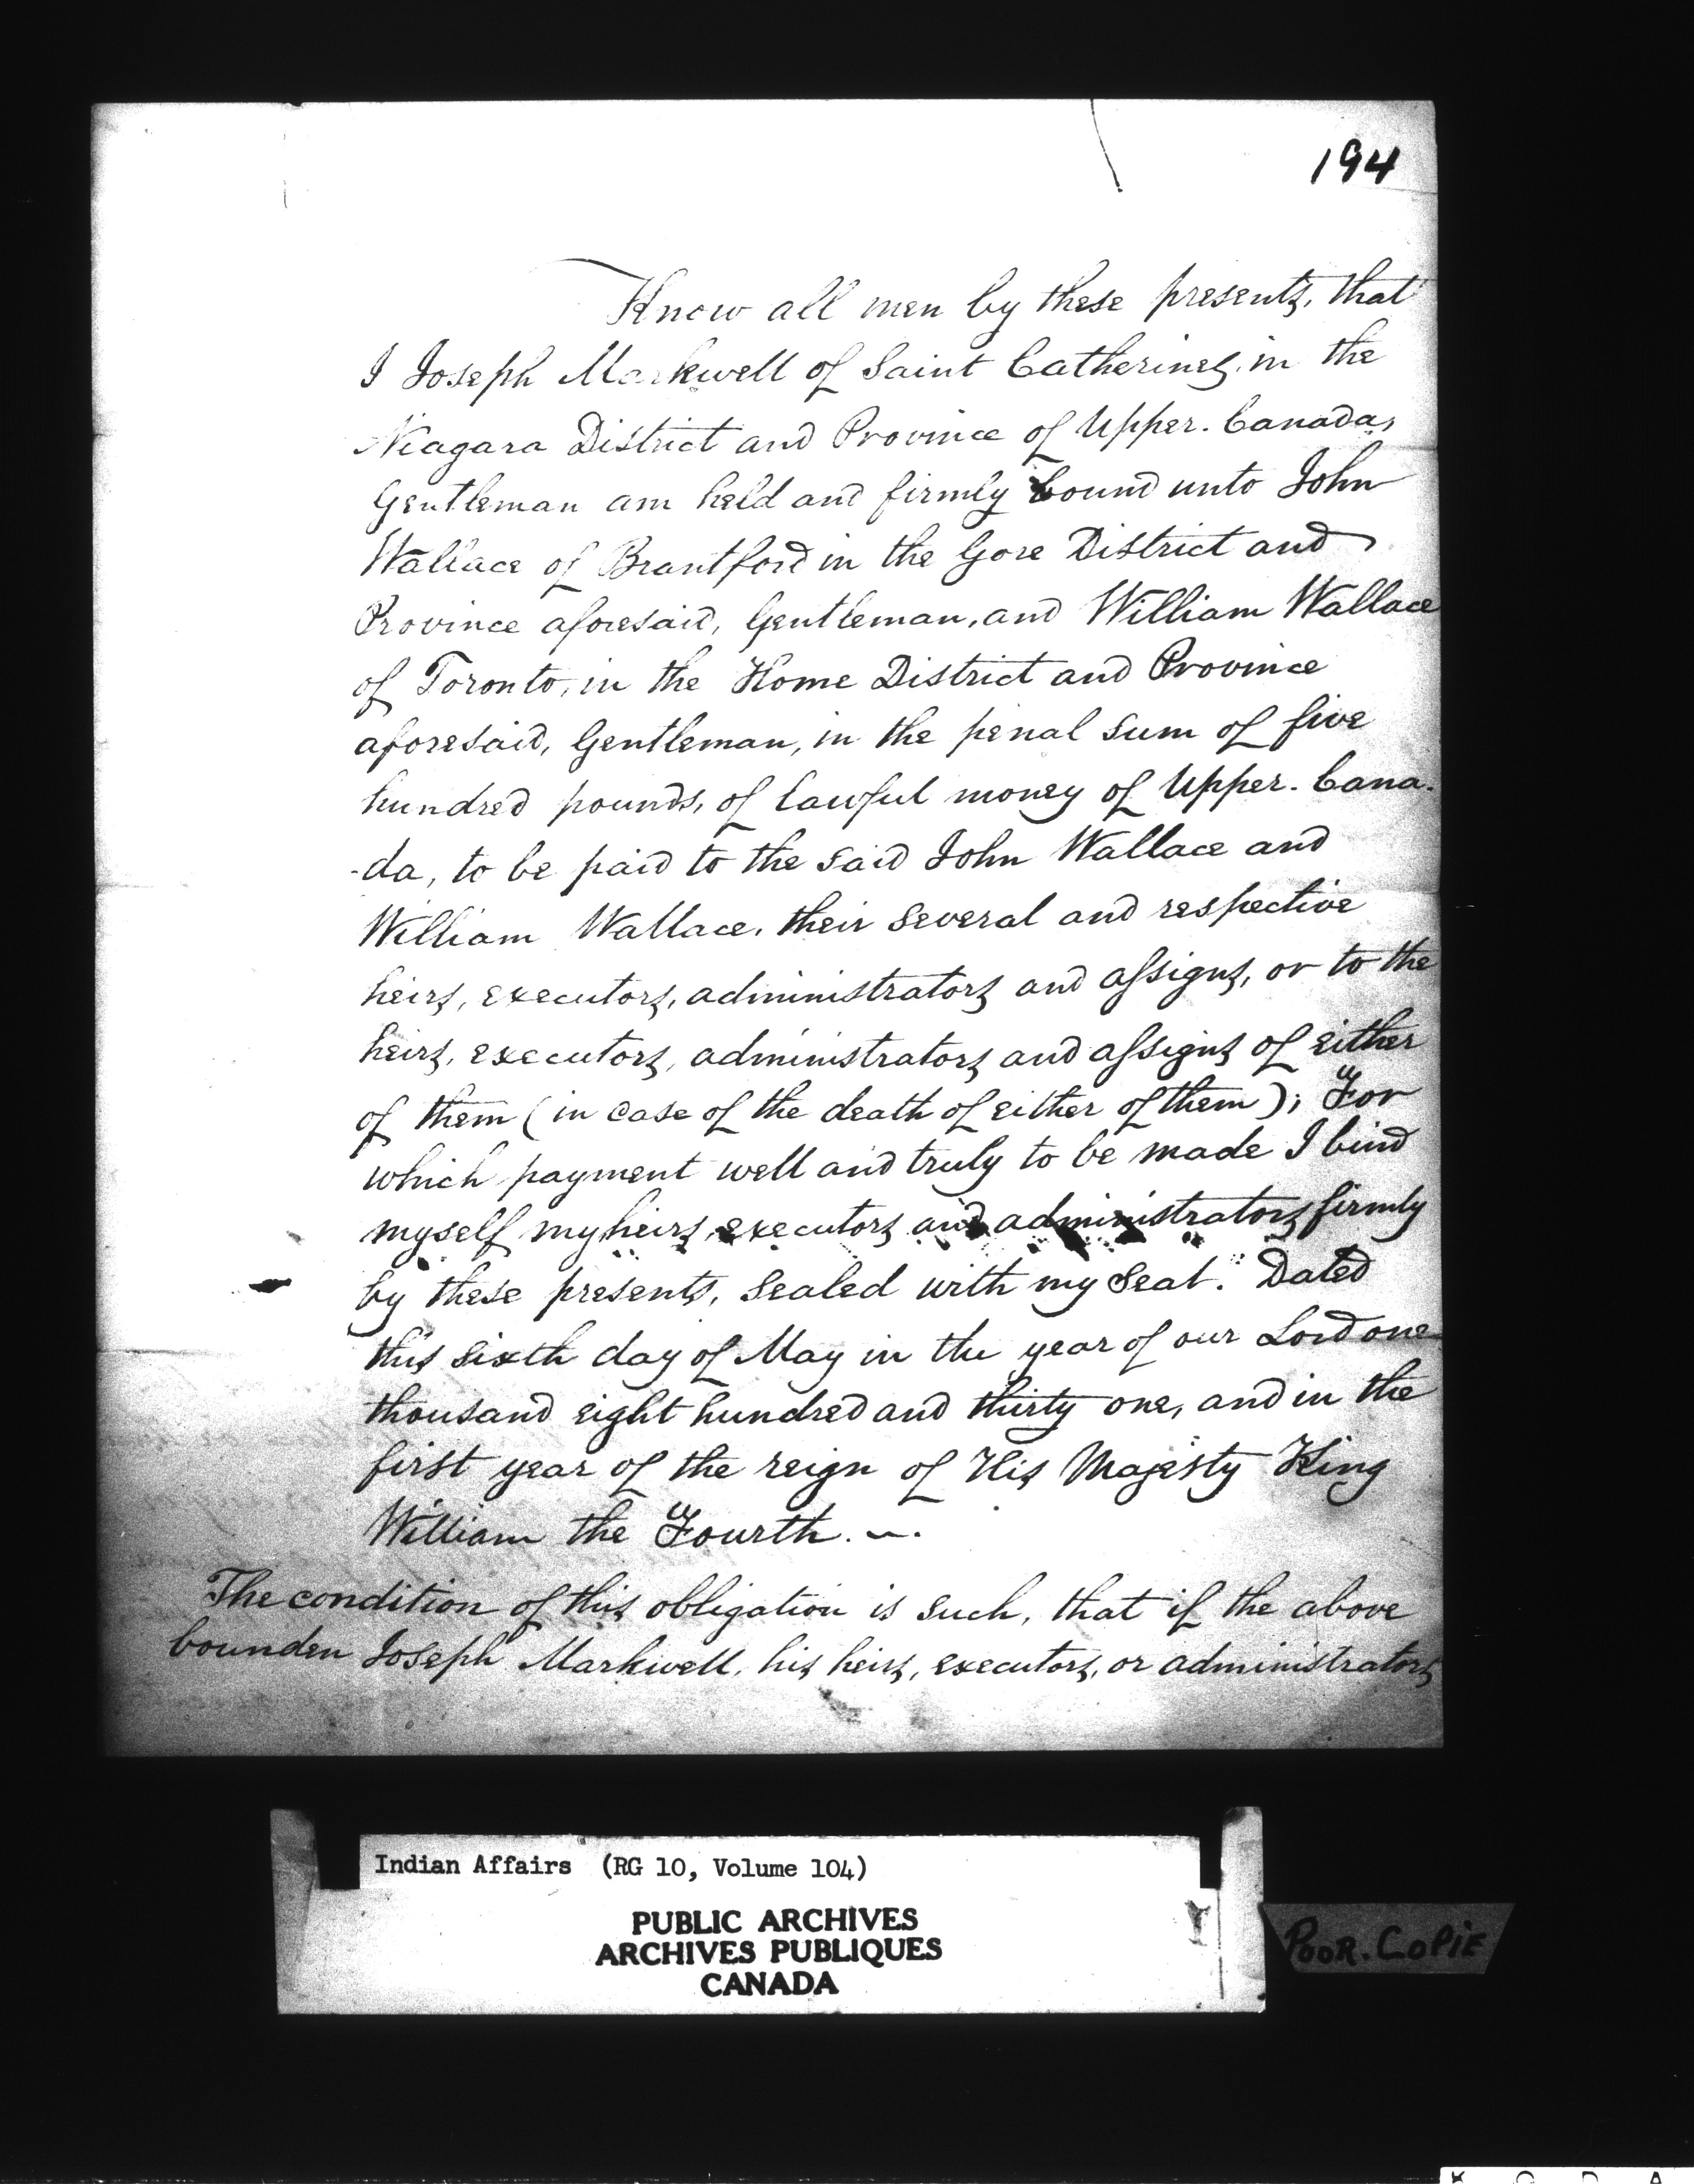 194
Know all men by these presents, that
I Joseph Markwell of Saint Catherines, in the
Niagara District and Province of Upper-Canada,
Gentleman am held and firmly bound unto John
Wallace of Brantford in the Gore District and
Province aforesaid, Gentleman, and William Wallace
of Toronto, in the Home District and Province
aforesaid, Gentleman, in the penal sum of five
hundred pounds, of lawful money of Upper-Cana-
-da, to be paid to the said John Wallace and
William Wallace, their several and respective
heirs, executors, administrators and assigns, or to the
heirs, executors, administrators and assigns of either
of them (in case of the death of either of them); For
which payment well and truly to be made I bind
myself my heirs, executors and administrators firmly
by these presents, Sealed with my Seal. Dated
this sixth day of May in the year of our Lord one
thousand eight hundred and thirty one, and in the
first year of the reign of His Majesty King
William the Fourth. ~.
The condition of this obligation is such, that if the above
bounden Joseph Markwell, his heirs, executors, or administrators
Indian Affairs (RG 10, Volume 104)
PUBLIC ARCHIVES
ARCHIVES PUBLIQUES
CANADA
POOR. COPIE
K O D A